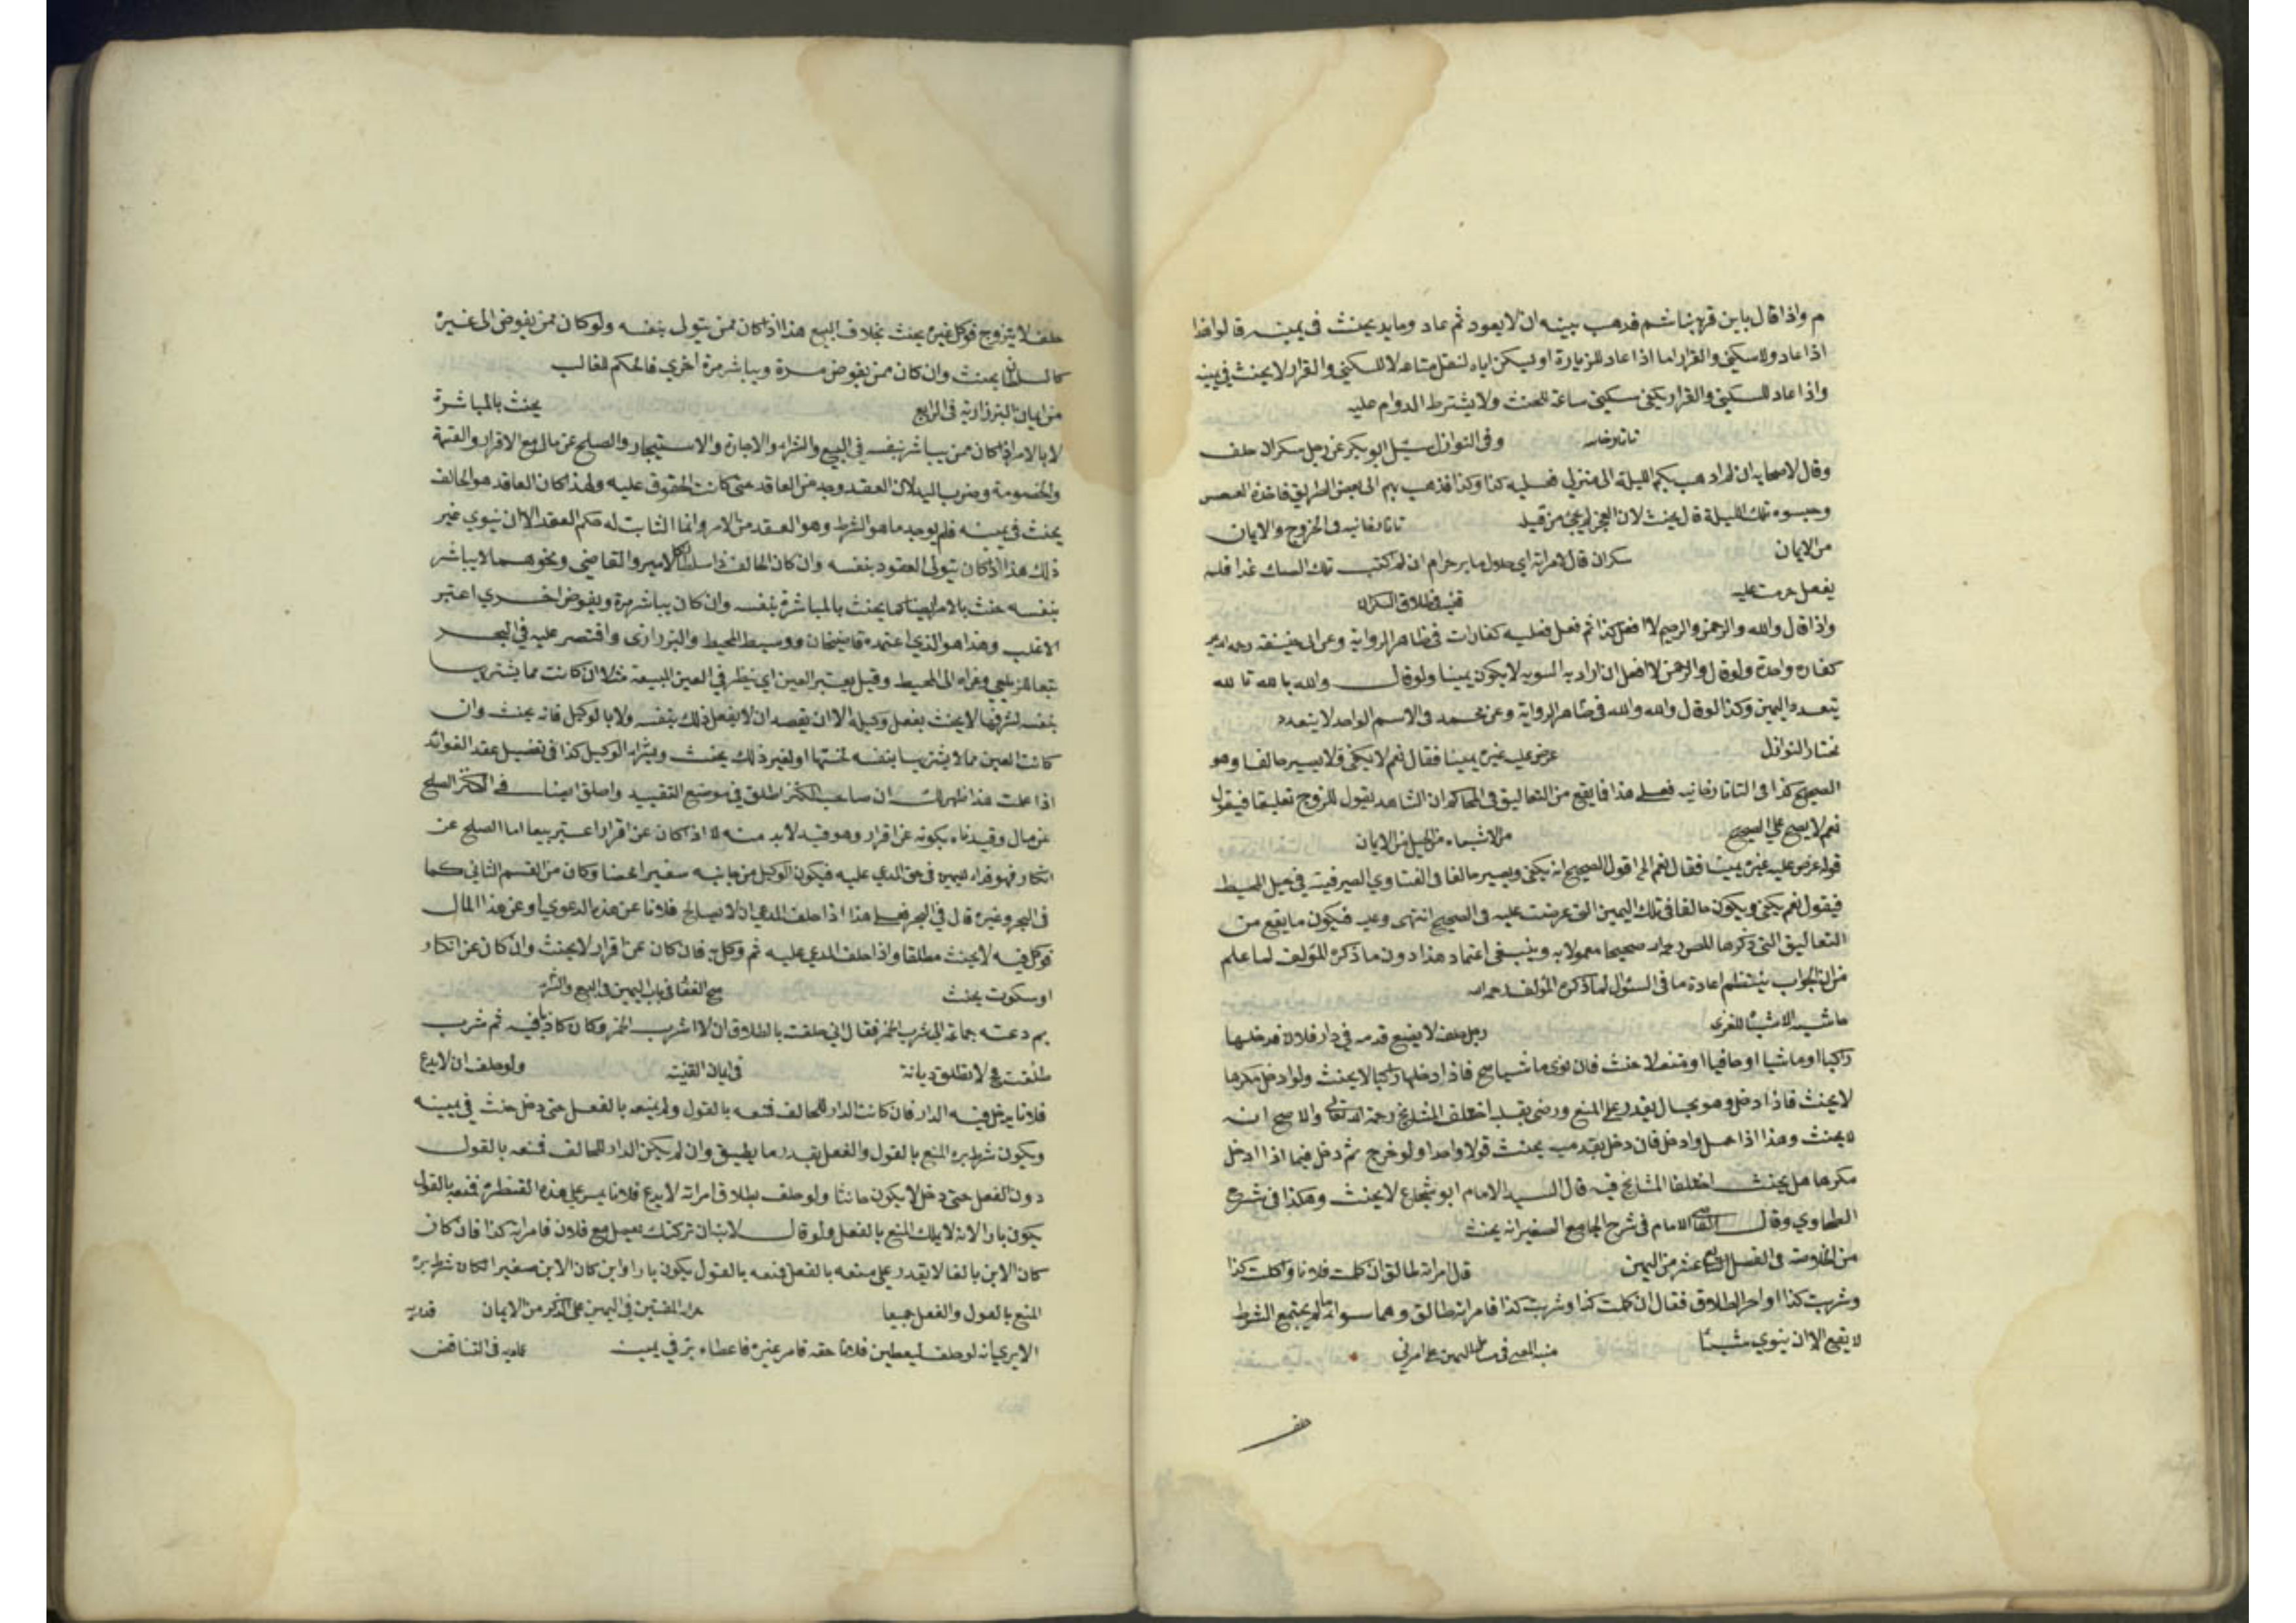 م واذا قال باين قريبنا شم فذهب بينه ان لا يعود ثم عاد وما بد يحنث في يمينه قالوا هذا
اذا عاد وللسكنى والقرار اما اذا عاد للزيارة او ليكن اياه لنقل متاعه لا للسكنى والقرار لا يحنث في يمينه
واذا عاد للسكنى والقرار يكفي سكنى ساعة للحنث ولا يشترط الدوام عليه
تاتارخانيه وفى النوازل سئل ابو بكر عن رجل سكران حلف
وقال لاصحابه ان لم اذهب بكم الليلة الى منزلي فعليه كذا وكذا فذهب بهم الى بعض الطريق فاخذه العسس
وحبسوه تلك الليلة قال يحنث لان العجز لم يجئ من قبله تاتارخانيه في الخروج والايمان
من الايمان سكران قال لامراته اي حلال ما بر حرام ان لم اكتب تلك السك غدا فلم
يفعل حرمت عليه قنيه في طلاق السكران
واذا قال والله والرحمن والرحيم لا افعل كذا ثم فعل فعليه كفارات في ظاهر الرواية وعن ابي حنيفة رحمه الله
كفارة واحدة ولو قال والرحمن لا افعل ان اراد به السورة لا يكون يمينا ولو قال والله بالله تالله
يتعدد اليمين وكذا لو قال والله والله في ظاهر الرواية وعن محمد في الاسم الواحد لا يتعدد
مختار النوازل عرض عليه غيره يمينا فقال نعم لا يكفي ولا يصير حالفا وهو
الصحيح كذا فى التاتارخانيه فعلى هذا فا يقع من التعاليق في المحاكم ان الشاهد يقول للزوج تعليقا فيقول
نعم لا يصح على الصحيح من الاشباه من الحيل من الايمان
قوله عرض عليه غيره يمينا فقال نعم الخ اقول الصحيح انه يكفي ويصير حالفا فى الفتاوي الصيرفية في حيل المحيط
فيقول نعم يكفي ويكون حالفا في تلك اليمين التي عرضت عليه في الصحيح انتهى وعليه فيكون ما يقع من
التعاليق التي ذكرها المصنف رحمه الله صحيحا معمولا به وينبغى اعتماد هذا دون ما ذكره المؤلف لما علم
من ان الجواب يتضمن اعادة ما في السؤال لما ذكره المؤلف رحمه الله
حاشيه الاشباه للغزى رجل حلف لا يضع قدمه في دار فلان فدخلها
راكبا او ماشيا او حافيا او متنعلا حنث فان نوى ماشيا صح فاذا دخلها راكبا لا يحنث ولو ادخل مكرها
لا يحنث فاذا ادخل وهو بحال يقدر على المنع ورضى بقلبه اختلف المشايخ رحمة الله تعالى والاصح انه
لا يحنث وهذا اذا حمل وادخل فان دخل بقدميه يحنث قولا واحدا ولو خرج ثم دخل فيما اذا ادخل
مكرها هل يحنث اختلفا المشايخ فيه قال السيد الامام ابو شجاع لا يحنث وهكذا في شرح
الطحاوي وقال القاضى الامام في شرح الجامع الصغير انه يحنث
من الخلاصة في الفصل الرابع عشر من اليمين قال امراته طالق ان كلمت فلانا و اكلت كذا
وشربت كذا او اخر الطلاق فقال ان كلمت كذا وشربت كذا فامراته طالق وهما سواء ما لم يجتمع الشرط
لا يقع الا ان ينوي شيئا منية المفتى في اليمين على امرين
حلف
حلف لا يتزوج فوكل غيره يحنث بخلاف البيع هذا اذا كان ممن يتولى بنفسه ولو كان ممن يفوض الى غيره
كالسلطان يحنث وان كان ممن يفوض مرة ويباشر مرة اخري فالحكم للغالب
من ايمان البزازية في الرابع يحنث بالمباشرة
لا بالامر اذا كان ممن يباشر بنفسه في البيع والشراء والاجارة والاستيجار والصلح عن مال مع الاقرار والقسمة
والخصومة وضرب الولد لان العقد وجد من العاقد حتى كانت الحقوق عليه ولهذا لو كان العاقد هو الحالف
يحنث في يمينه فلم يوجد ما هو الشرط وهو العقد من الامر وانما الثابت له حكم العقد الا ان ينوي غير
ذلك هذا اذا كان يتولى العقود بنفسه وان كان الحالف ذا سلطان كالامير والقاضي ونحوهما لا يباشر
بنفسه حنث بالامر ايضا كما يحنث بالمباشرة بنفسه وان كان يباشر مرة ويفوض اخري اعتبر
الاغلب وهذا هو الذي اعتمده قاضيخان ووسيط المحيط والبزازى واقتصر عليه في البحر
تبعا للزيلعي وعزاه الى المحيط وقيل يعتبر العين اي ينظر في العين المبيعة مثلا ان كانت مما يشتريها
بنفسه لشرفها لا يحنث بفعل وكيله الا ان يقصد ان لا يفعل ذلك بنفسه ولا بالوكيل فانه يحنث وان
كانت العين مما لا يشتريها بنفسه لخستها او لغير ذلك يحنث وبشراء الوكيل كذا في تفصيل عقد الفوائد
اذا علمت هذا ظهر لك ان صاحب الكنز اطلق في موضع التقييد واطلق ايضا في الكنز الصلح
عن مال وقيدناه بكونه عن اقرار وهو قيد لا بد منه لا اذ كان عن اقرار اعتبر بيعا اما الصلح عن
انكار فهو فداء لليمين في حق المدعي عليه فيكون الوكيل من جانبه سفيرا محضا وكان من القسم الثاني كما
فى البحر وغيره قال في البحر فعلى هذا اذا حلف المدعي ان لا يصالح فلانا عن هذه الدعوي او عن هذا المال
فوكل فيه لا يحنث مطلقا واذا حلف المدعي عليه ثم وكل به فان كان عن اقرار لا يحنث وان كان عن انكار
او سكوت يحنث منح الغفار في باب اليمين في البيع والشراء
بم دعته جماعة الى شرب الخمر فقال اني حلفت بالطلاق ان لا اشرب الخمر وكان كاذبا فيه ثم شرب
طلقت مح لا تطلق ديانة في ايمان القنية ولو حلف ان لا يدع
فلانا يدخل فيه الدار فان كانت الدار للحالف فمنعه بالقول ولم يمنعه بالفعل حتى دخل حنث في يمينه
ويكون شرط بره المنع بالقول والفعل بقدر ما يطيق وان لم يكن الدار للحالف فمنعه بالقول
دون الفعل حتى دخل لا يكون حانثا ولو حلف بطلاق امراته لا يدع فلانا يمر على هذه القنطرة فمنعه بالقول
يكون بارا لانه لا يملك المنع بالفعل ولو قال لابنه ان تركتك تعمل مع فلان فامراته كذا فان كان
كان الابن بالغا لا يقدر على منعه بالفعل فمنعه بالقول يكون بارا وان كان الابن صغيرا كان شرط بره
المنع بالقول والفعل جميعا من اليمين على الذكر من الايمان
الا يري انه لو حلف ليعطين فلانا حقه فامر غيره فاعطاه بر في يمينه عماديه في التناقض